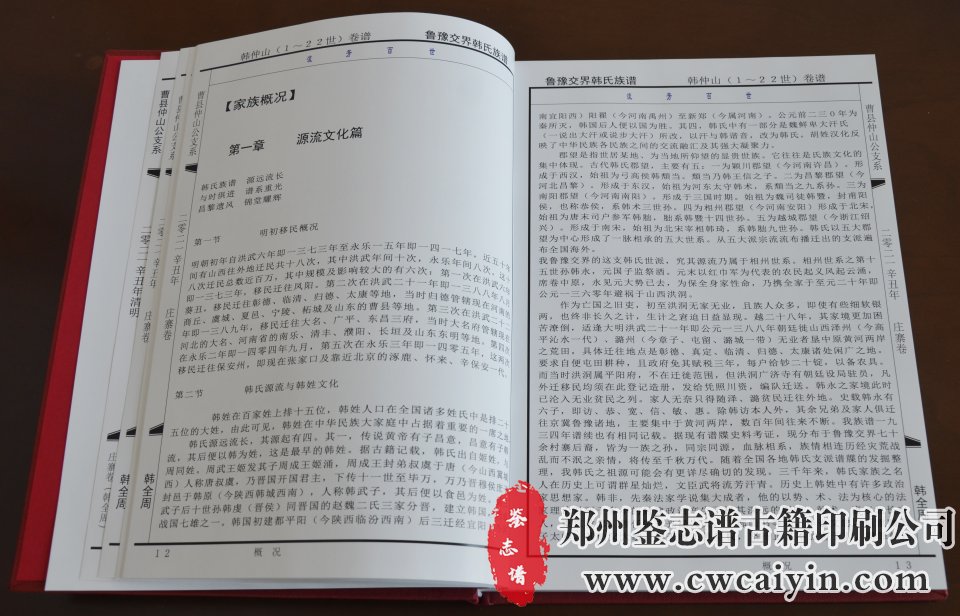 韩仲山（1～22世）卷谱
鲁豫交界韩氏族谱
流芳百世
【家族概况】
第一章 源流文化篇
韩氏族谱 源远流长
与时俱进 谱系重光
昌黎遗风 锦堂耀辉
第一节 明初移民概况
明朝初年自洪武六年即一三七三年至永乐一五年即一四一七年，近五十年
间有山西往外地迁民共十八次，其中洪武年间十次，永乐年间八次，这
八次迁民总数近百万，其中规模及影响较大的有六次：第一次在洪武六年
即一三七三年，移民迁往凤阳。第二次在洪武二十一年即一三八八年八月
葵丑，移民迁往彰德，临清、归德、太康等地，当时归德管辖现在河南的
商丘、虞城、夏邑、宁陵、柘城及山东的曹县等地。第三次在洪武二十二
年即一三八九年，移民迁往大名、广平、东昌三府，当时大名府管辖现在
河北的大名、河南省的南乐、清丰、濮阳、长垣及山东东明等地。第四次
在永乐二年即一四零四年九月，第五次在永乐三年即一四零五年，这两次
移民迁往保安州，即现在张家口及靠近北京的涿鹿、怀来、辛保安一代。
第二节 韩氏源流与韩姓文化
韩姓在百家姓上排十五位，韩姓人口在全国诸多姓氏中是排二十
五位的大姓，由此可见，韩姓在中华民族大家庭中占据着重要的一席之地
韩氏源远流长，其源起有四。其一，传说黄帝有子昌意，昌意有子韩
流，其后便以韩为姓，这是最早的韩姓。据古籍记载，韩氏出自姬姓，与
周同姓。周武王姬发其子周成王姬涌，周成王封弟叔虞于唐（今山西翼城
西）人称唐叔虞，乃晋国开国君主，下传十一世至毕万，万乃晋穆侯庶
封邑于韩原（今陕西韩城西南），人称韩武子，其后便以食邑为姓。韩
武子后十世孙韩虔（晋侯）同晋国的赵魏二氏三家分晋，建立韩国，为
战国七雄之一，韩国初建都平阳（今陕西临汾西南）后三迁经宜阳
12 概况
曹县仲山公支系
二零二一辛丑年清明
庄寨卷
韩全周
鲁豫交界韩氏族谱 韩仲山（1～22世）卷谱
流芳百世
南宜阳西）阳翟（今河南禹州）至新郑（今属河南）。公元前二三0年为
秦所灭，韩国后人便以国为姓。其四，韩氏中有一部分是魏鲜卑大汗氏
（一说出大汗或说步大汗）所改，以汗与韩谐音，改为韩氏，胡姓汉化反
映了中华民族各民族之间的交流融汇及其强大凝聚力。
郡望是指世居某地、为当地所仰望的显贵世族。它往往是氏族文化的
集中体现。古代韩氏郡望，主要有五：一为颖川郡望（今河南许昌），形
成于西汉，始祖为弓高侯韩颓当。颓当乃韩王信之子。二为昌黎郡望（今
河北昌黎），形成于东汉，始祖为河东太守韩术，系颓当之九系孙。三为
南阳郡望（今河南南阳），形成于三国时期。始祖为魏司徒韩暨，封南阳
侯，也称恭侯，系韩术三世孙。四为相州郡望（今河南安阳）形成于北宋，
始祖为唐末司户参军韩朏，朏系韩暨十四世孙。五为越城郡望（今浙江绍
兴），形成于南宋，始祖为北宋宰相韩琦，系韩朏九世孙。韩氏以五大郡
望为中心形成了一脉相承的五大世系。从五大派宗派流布播迁出的支派遍
布全国海外。
我鲁豫界的这支韩氏世派，究其源流乃属于相州世系。相州世系之第十
五世孙韩永，元国子监祭酒。元末以红巾军为代表的农民起义风起云涌，
席卷中原，永见元大势已去，为保全身家性命，乃携全家于至元二十年即
公元一三六零年避祸于山西洪洞。
作为亡国之旧吏，初至洪洞无家无业，且族人众多，即使有些细软银
两，也终非长久之计，生计之窘迫日益显现。越二十八年，其家境更加困
苦潦倒，适逢大明洪武二十一年即公元一三八八年朝廷徙山西泽州（今高
平沁水一代）、潞州（今章子、屯留、潞城一带）无业者垦中原黄河两岸
之荒田，具体迁往地点是彰德、真定、临清、归德、太康诸处闲广之地。
要求自便屯田耕种，且政府免其赋税三年，每户给钞二十锭，以备农具。
而当时洪洞属平阳府，不在迁徙范围，但洪洞广济寺有朝廷设局驻员，凡
外迁移民均须在此登记造册，发给凭照川资，编队迁送。韩永之家境此时
已沦入无业贫民之列。家人无奈只得随泽、潞贫民迁往外地。史载韩永有
六子，即访、恭、宽、信、敏、惠。除韩访本人外，其余兄弟及家人俱迁
往京冀鲁豫诸地，主要集中于黄河两岸，数百年间往来不断。我族谱一九
三四年谱续也有相同记载。据现有谱牒史料考证，现分布于鲁豫交界七十
余村寨后裔，皆为一族之孙，同宗同源，血脉相系，族情相连历经灾荒战
乱而不泯之亲情，将传至千秋万代。随着全国各地韩氏支派谱牒的发掘整
理，我韩氏之祖源可能会有更详尽确切的发现。三千年来，韩氏家族之名
人在历史上可谓群星灿烂，文臣武将流芳汗青。历史上韩姓中有许多政治
家思想家。韩非，先秦法家学说集大成者，他的以势、术、法为核心的法
曹县仲山公支系
二零二一辛丑年
庄寨卷
韩全周
概况 13
鉴志谱
郑州鉴志谱古籍印刷公司
www.cwcaiyin.com